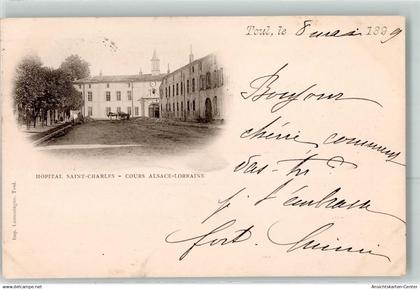 Toul, le 8 mai 1899
Bonjour
chérie comment
vas-tu
je t'embrasse
fort,
HOPITAL SAINT-CHARLES - COURS ALSACE-LORRAINE
Imp. Lemondrgne, Toul.
www.ansichtskarten-center.de
Ansichtskarten-Center